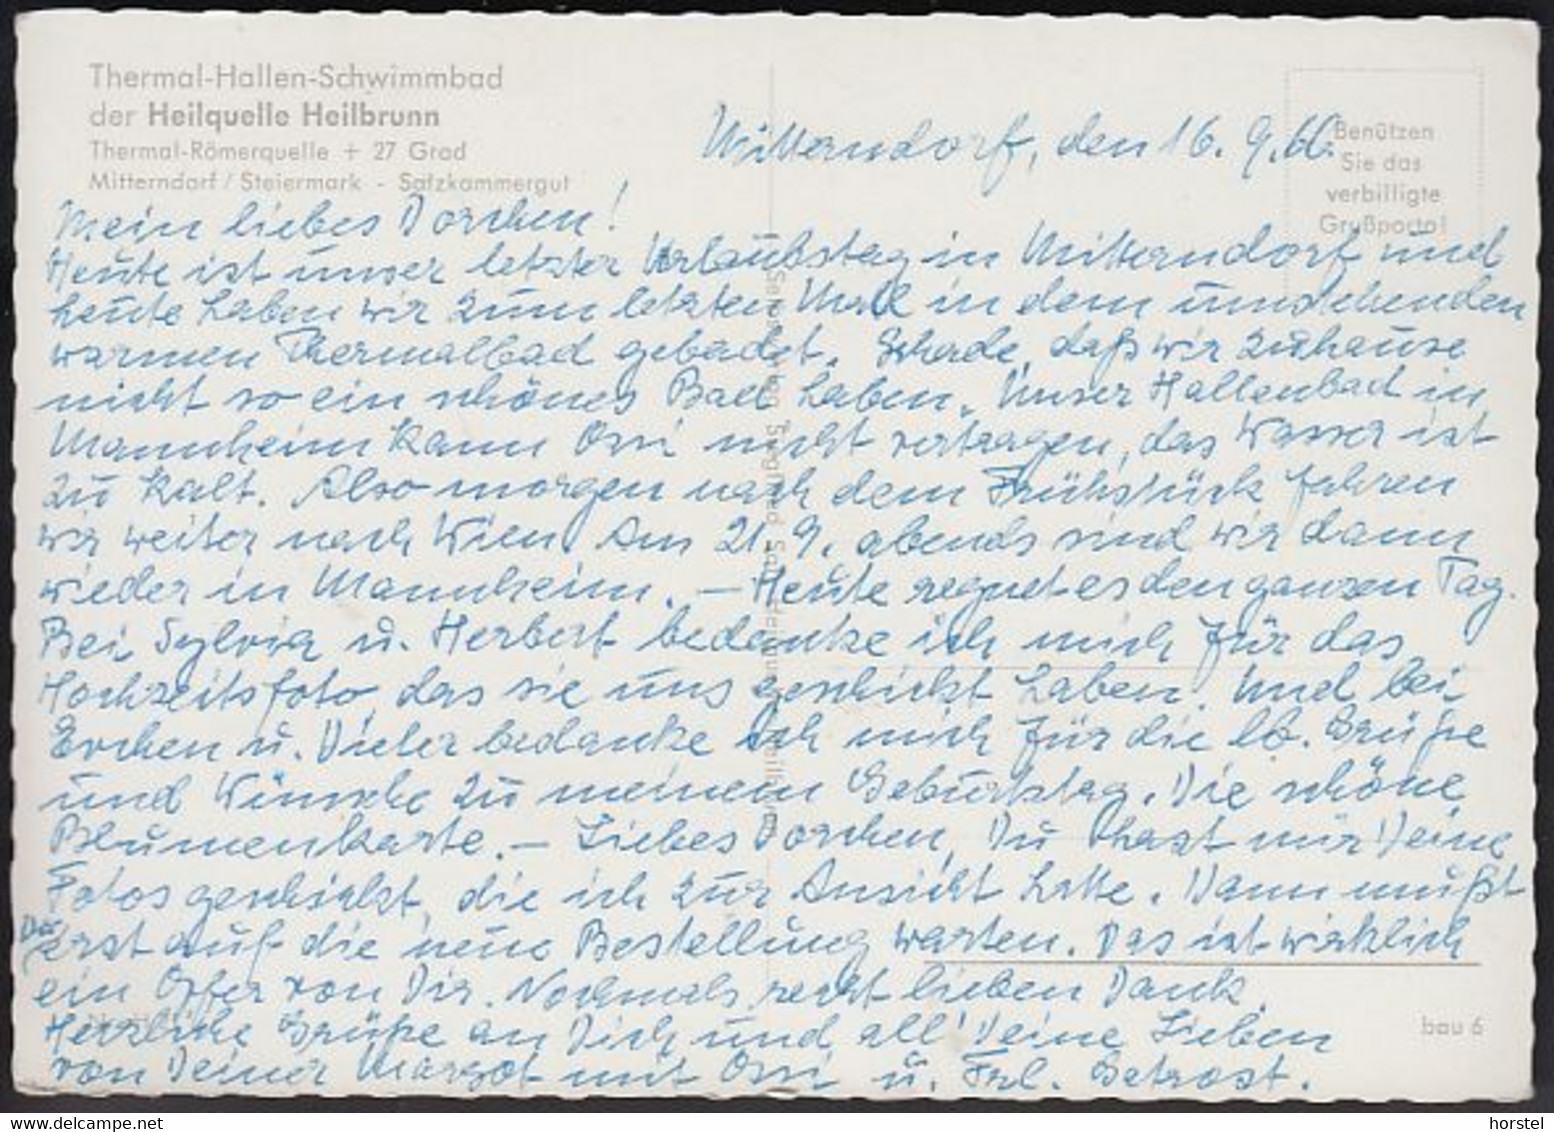 Thermal-Hallen-Schwimmbad
der Heilquelle Heilbrunn
Thermal-Römerquelle + 27 Grad
Mitterndorf / Steiermark - Salzkammergut
Benützen
Sie das
verbilligte
Grußporto!
Mitterndorf, den 16. 9. 66.
Mein liebes Dorchen!
Heute ist unser letzter Urlaubstag in Mitterndorf und
heute haben wir zum letzten Mal in dem umstehenden
warmen Thermalbad gebadet. Schade, daß wir zuhause
nicht so ein schönes Bad haben. Unser Hallenbad in
Mannheim kann Ossi nicht vertragen, das Wasser ist
zu kalt. Also morgen nach dem Frühstück fahren
wir weiter nach Wien. Am 21. 9. abends sind wir dann
wieder in Mannheim. — Heute regnet es den ganzen Tag.
Bei Sylvia u. Herbert bedanke ich mich für das
Hochzeitsfoto, das sie uns geschickt haben. Und bei
Evchen u. Dieter bedanke ich mich für die lb. Grüße
und Wünsche zu meinem Geburtstag. Die schöne
Blumenkarte. — Liebes Dorchen, Du hast mir Deine
Fotos geschickt, die ich zur Ansicht hatte. Dann mußt
Du erst auf die neue Bestellung warten. Das ist wirklich
ein Opfer von Dir. Nochmals recht lieben Dank.
Herzliche Grüße an Dich und all' Deine Lieben
von Deiner Margot mit Ossi u. Frl. Getrost.
bau 6
horstel